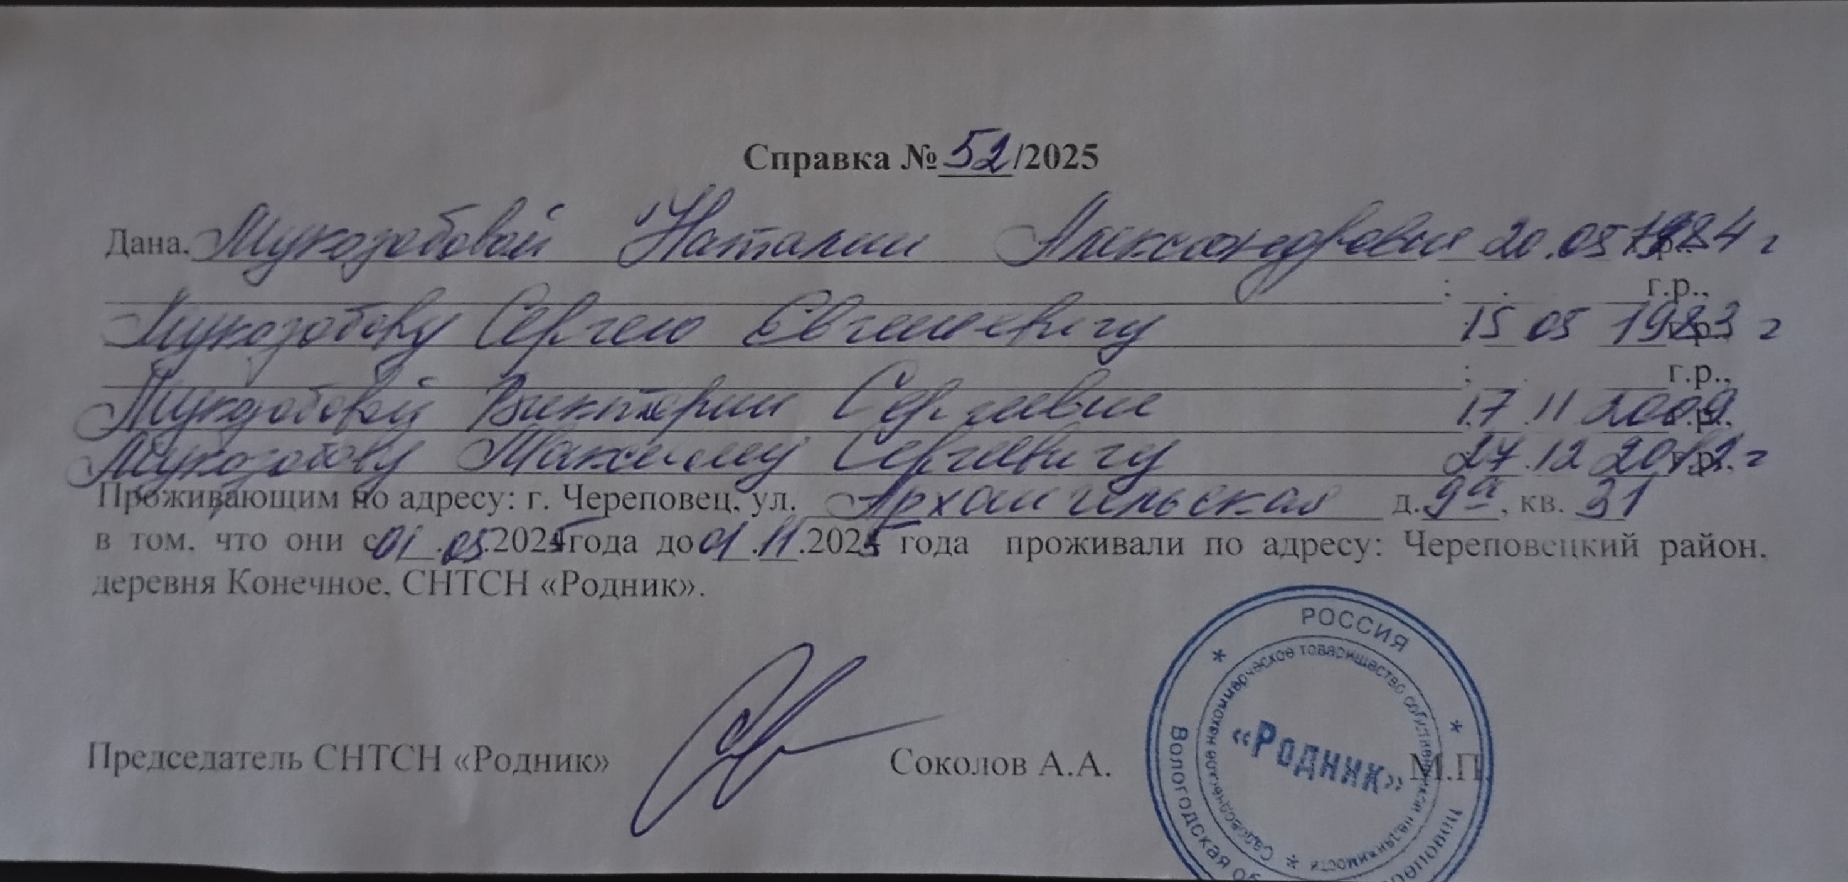 Справка № 52/2025
Дана. Мукозобовой Наталии Александровне 20.05 1984 г
: . г.р.,
Мукозобову Сергею Евгеньевичу 15 05 1983 г
: . г.р.,
Мукозобовой Виктории Сергеевне 17.11 2009
Мукозобову Максиму Сергеевичу 27.12 2012 г
Проживающим по адресу: г. Череповец, ул. Архангельская д. 9а, кв. 31
в том, что они с 01.05.2025 года до 01.11.2025 года проживали по адресу: Череповецкий район,
деревня Конечное, СНТСН «Родник».
Председатель СНТСН «Родник» Соколов А.А. М.П.
РОССИЯ
Вологодская об
Садоводческое некоммерческое товарищество собственников недвижимости
«Родник»